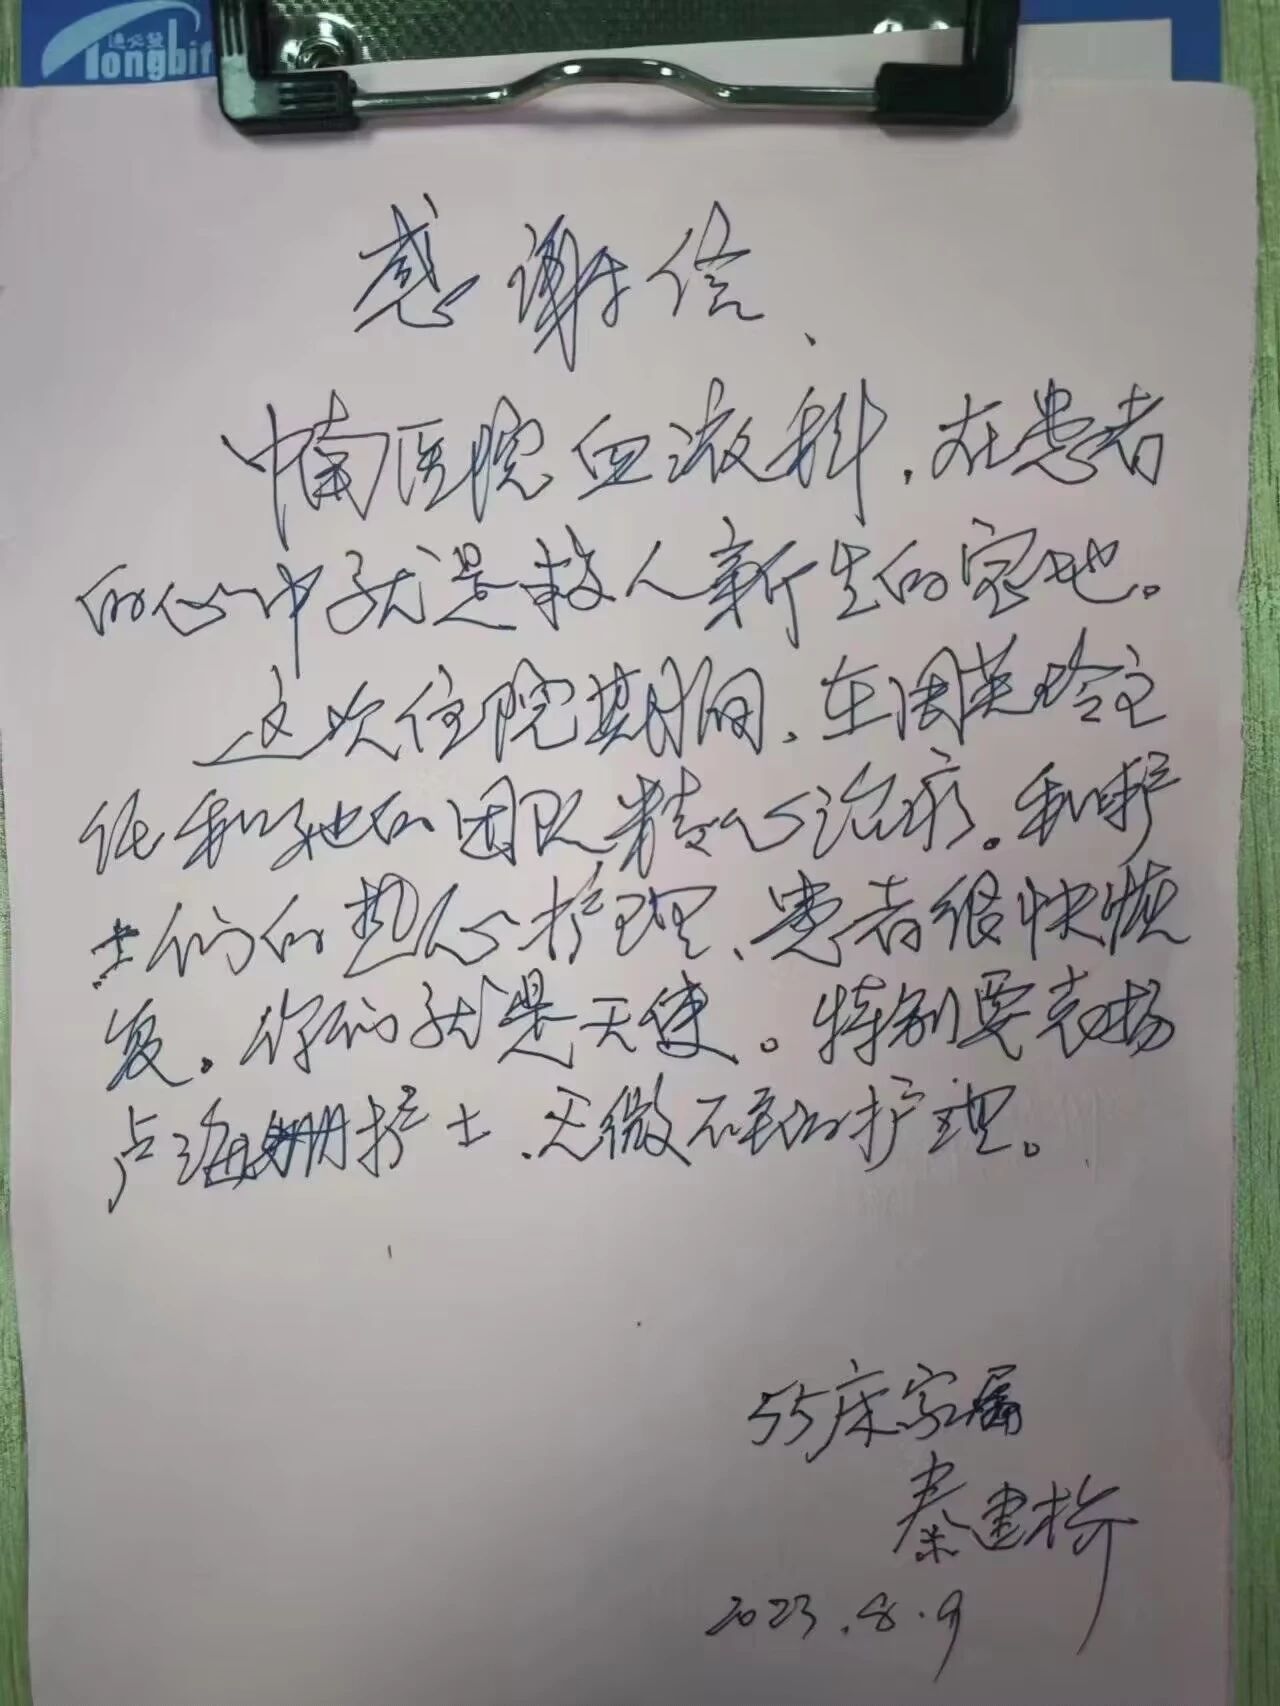 通必发
Longbif
感谢信、
中南医院血液科，在患者
的心中就是救人新生的宝地。
这次住院期间、在周英玲主
任和她的团队精心治疗。和护
士们的热心护理、患者很快恢
复。你们就是天使。特别要表扬
卢海珊护士、无微不至的护理。
55床家属
秦建桥
2023.8.9